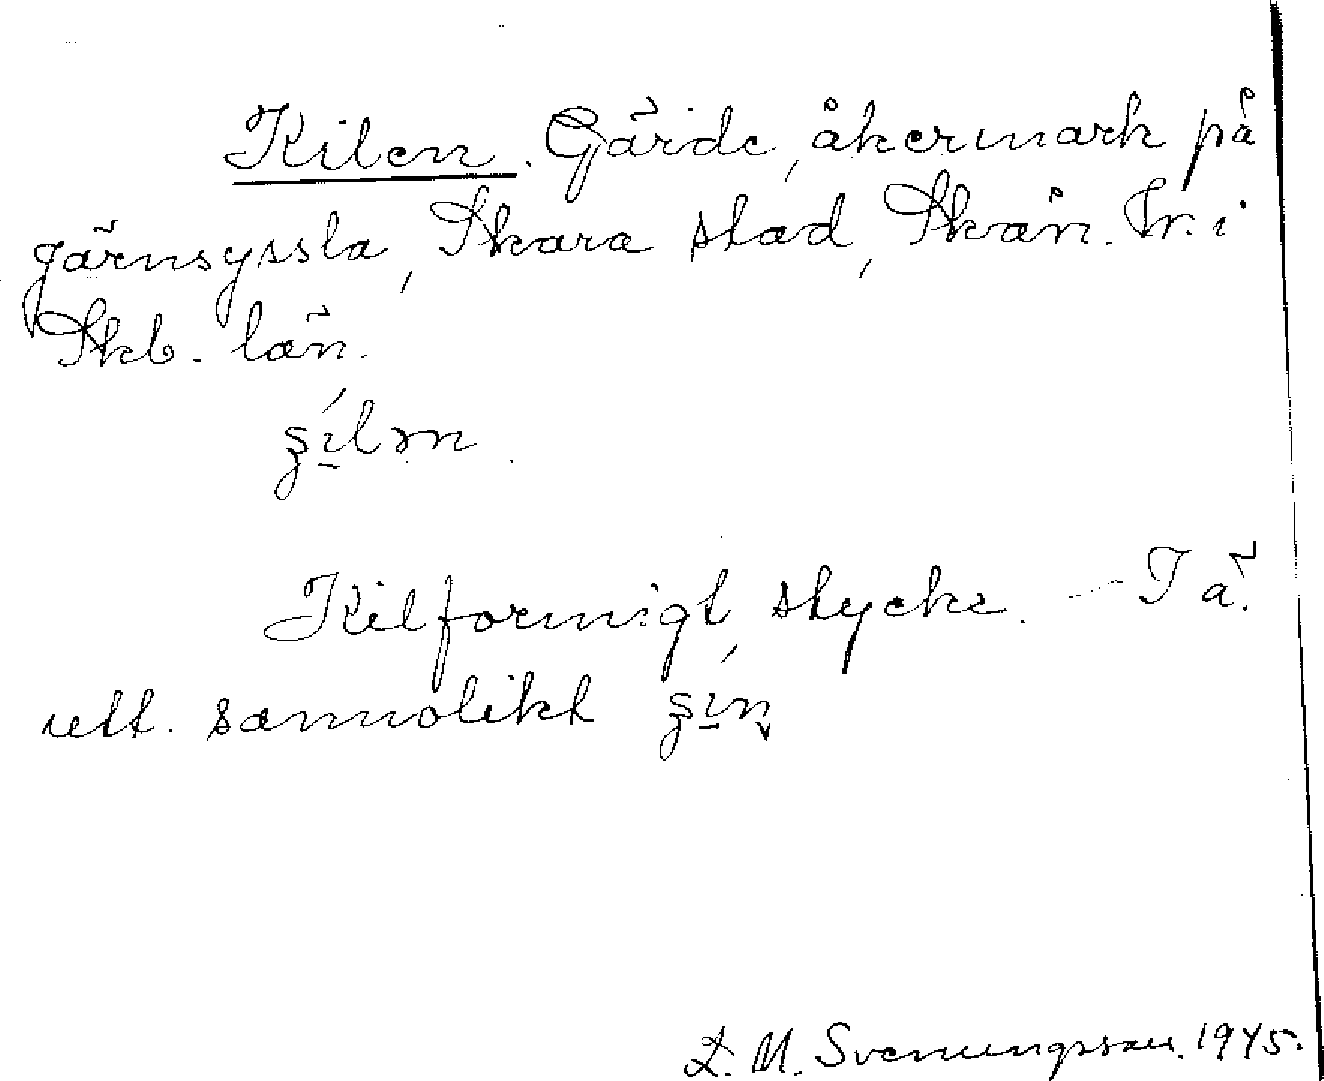 Kilen. Gärde, åkermark på
järnsyssla, Skara stad, Skån. Tr. i
Skb. län.
Kilformigt stycke. — I ä.
utt. sannolikt
D. M. Svenungsson. 1945.